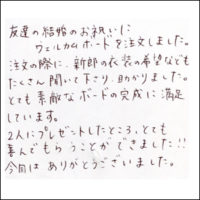 友達の結婚のお祝いに
ウェルカムボードを注文しました。
注文の際に、新郎の衣装の希望なども
たくさん聞いて下さり、助かりました。
とても素敵なボードの完成に満足
しています。
2人にプレゼントしたところ、とても
喜んでもらうことができました!!
今回はありがとうございました。